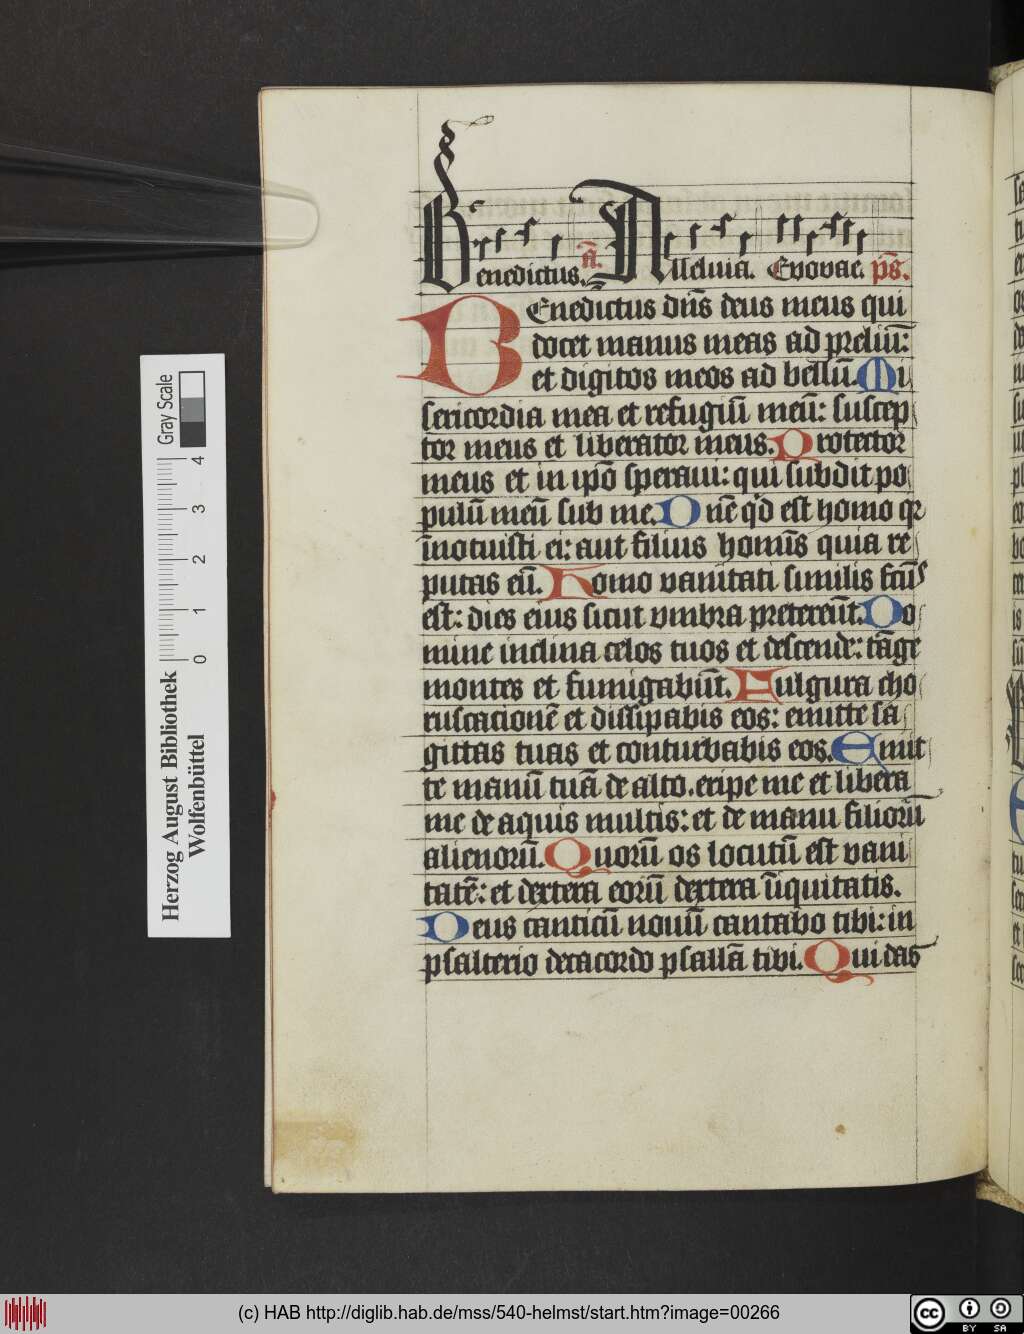 Benedictus. a̅. Alleluia. Euouae. ps̅.
BEnedictus dn̅s deus meus qui
docet manus meas ad preliu̅:
et digitos meos ad bellu̅. Mi
sericordia mea et refugiu̅ meu̅: suscep
tor meus et liberator meus. Protector
meus et in ipo̅ speraui: qui subdit po
pulu̅ meu̅ sub me. Dn̅e qd̕ est homo qꝛ
i̅notuisti ei: aut filius homi̅s quia re
putas eu̅. Homo vanitati similis fc̅us
est: dies eius sicut vmbra pretereu̅t. Do
mine inclina celos tuos et descende: ta̅ge
montes et fumigabu̅t. Fulgura cho
ruscacione̅ et dissipabis eos: emitte sa
gittas tuas et conturbabis eos. Emit
te manu̅ tua̅ de alto. eripe me et libera
me de aquis multis: et de manu filioru̅
alienoru̅. Quoru̅ os locutu̅ est vani
tate̅: et dextera eoru̅ dextera i̅iquitatis.
Deus canticu̅ nouu̅ cantabo tibi: in
psalterio decacordo psalla̅ tibi. Qui das
Gray Scale
0 1 2 3 4
Herzog August Bibliothek
Wolfenbüttel
(c) HAB http://diglib.hab.de/mss/540-helmst/start.htm?image=00266
cc BY SA